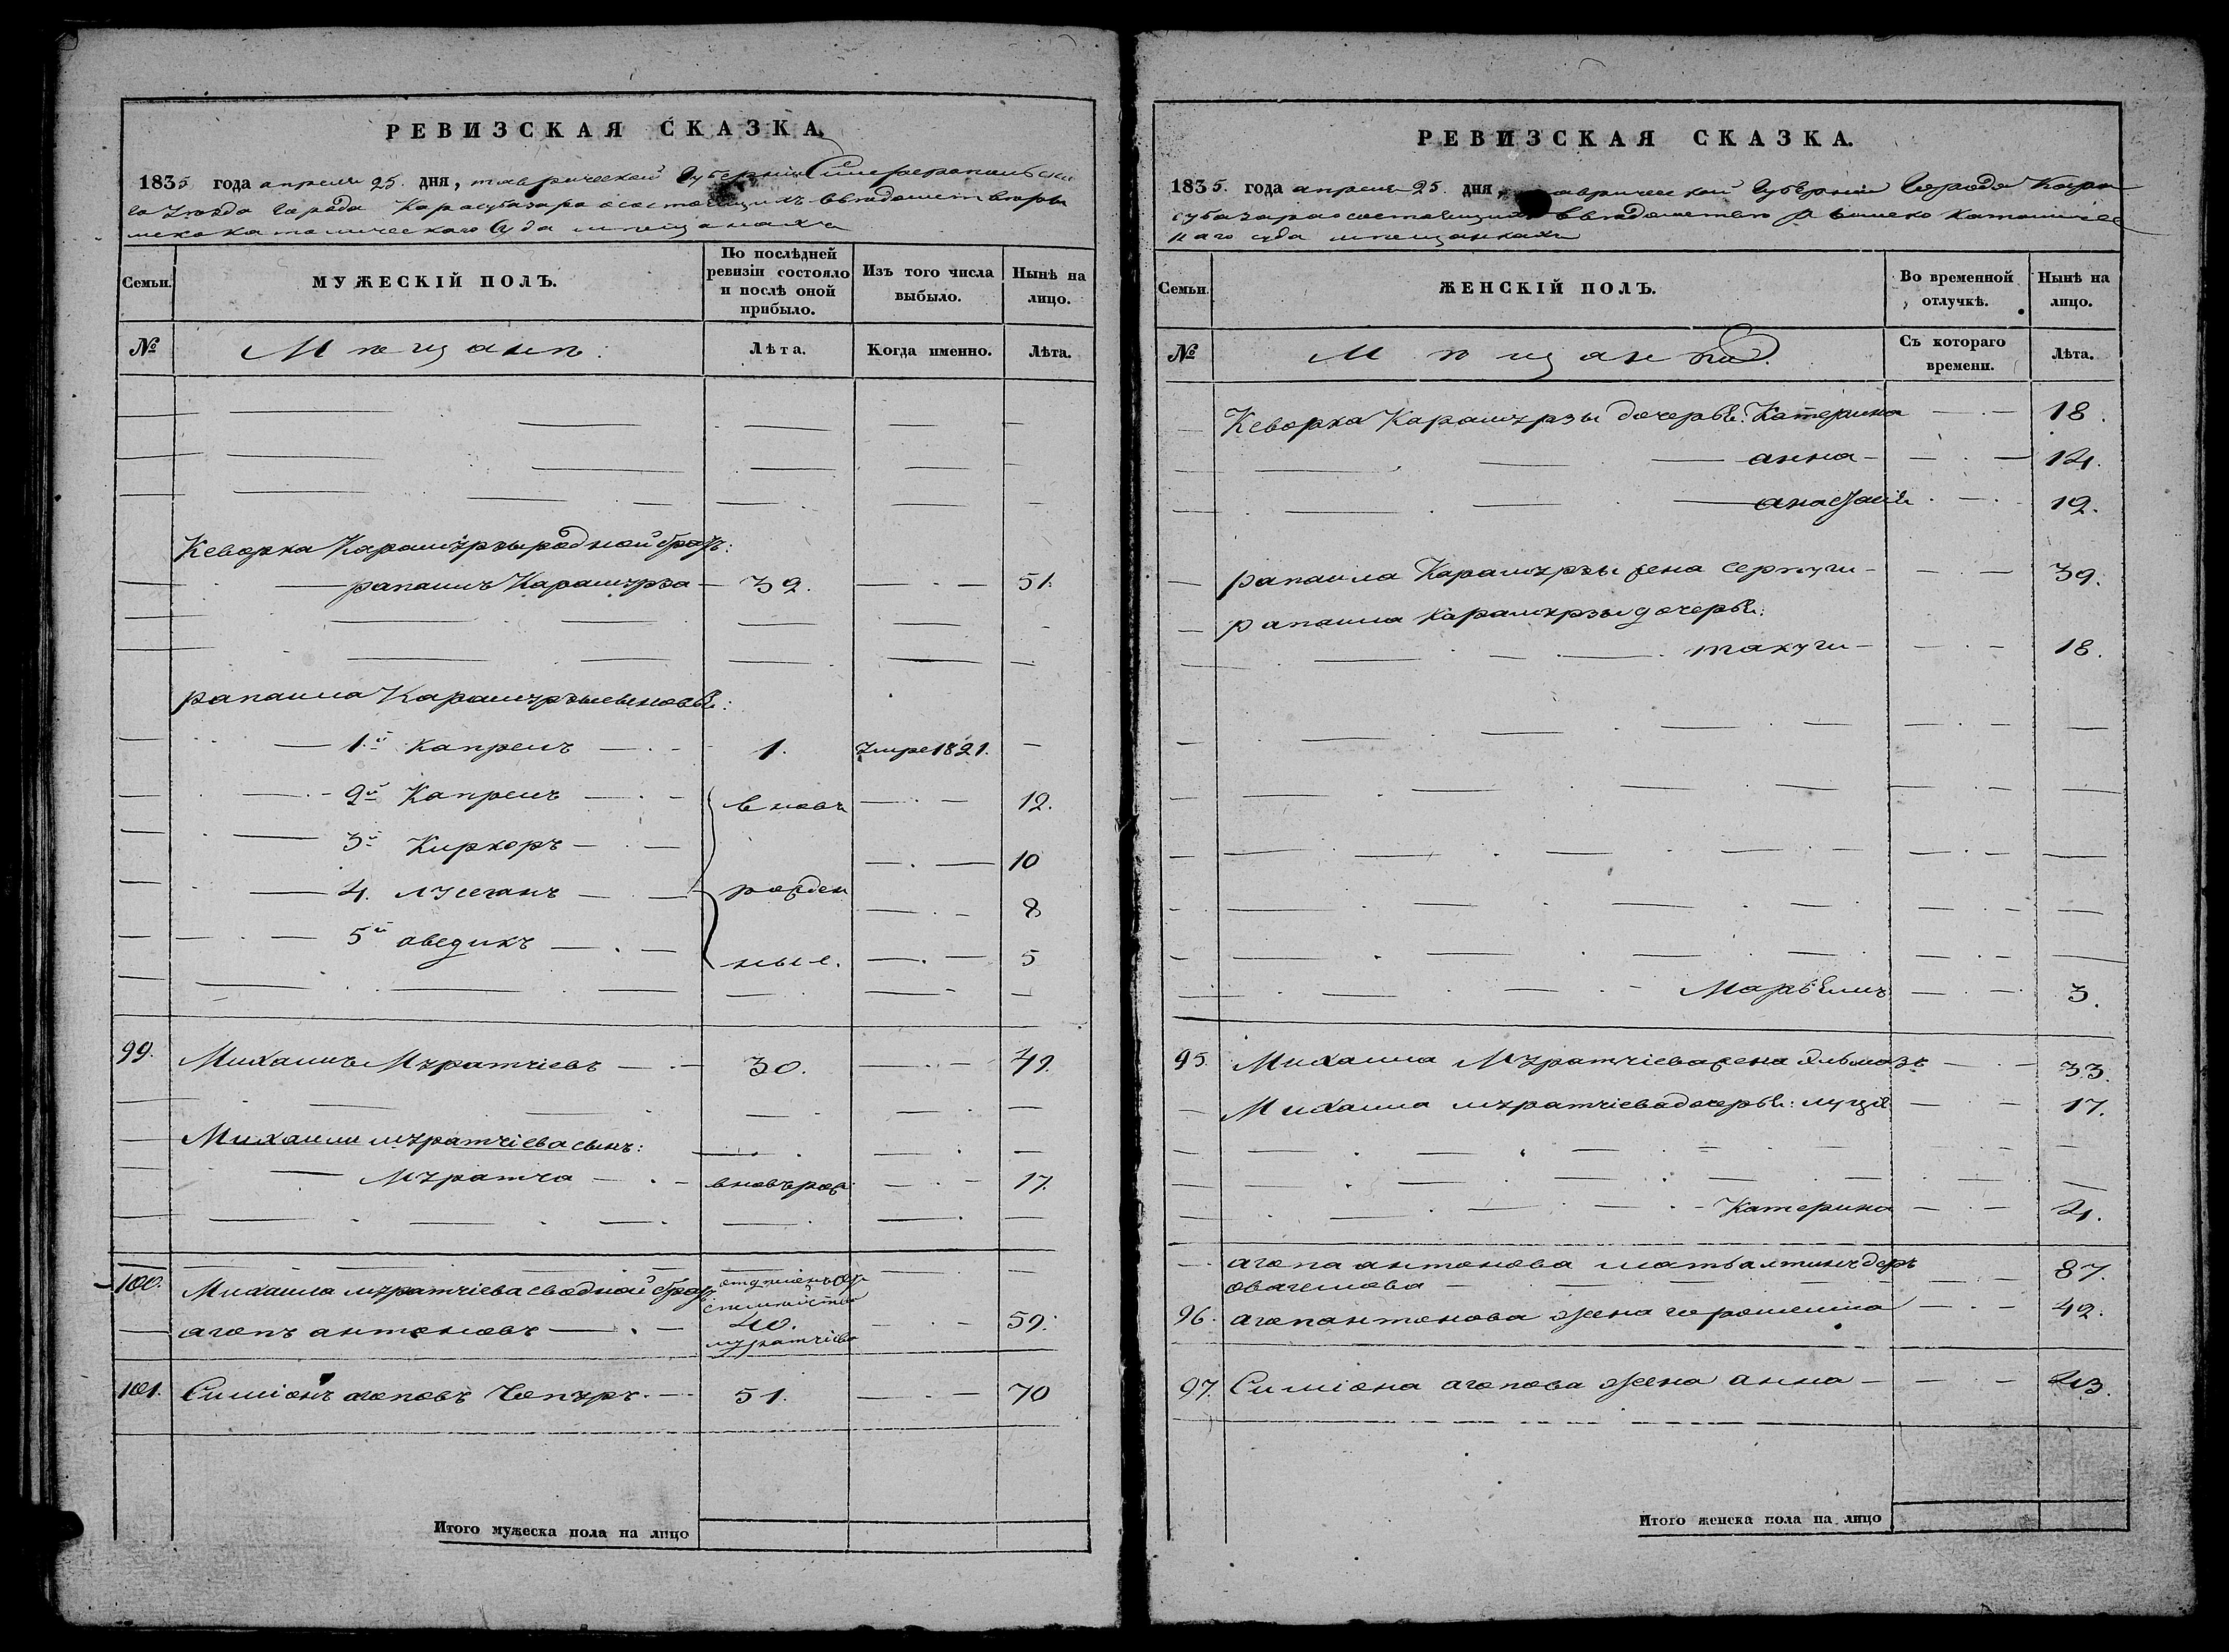 РЕВИЗСКАЯ СКАЗКА.
1835 года апреля 25. дня, таврической Губернии Симферопольска
го Уезда Города Карасубазара о состоящихъ въ ведомстве
католическаго Суда мещанахъ
Семьи.
МУЖЕСКІЙ ПОЛЪ.
По послѣдней ревизіи состояло и послѣ оной прибыло.
Изъ того числа выбыло.
Нынѣ на лицо.
№
Мѣщане:
Лѣта.
Когда именно.
Лѣта.
Кеворка Карамурзы родной братъ:
рапаилъ Карамурза 32. 51.
рапаила Карамурзы сыновья:
1й Капрелъ 1. умре 1821.
2й Капрелъ вновь 12.
3й Киркоръ 10
4. рожден 8
5й аведикъ ные. 5
99. Михаилъ Муратчіевъ 30. 49.
Михаила муратчіева сынъ:
Муратча вновьрож 17.
100. Михаила муратчіева сводной братъ
агопъ антоновъ 40. 59.
муратчіева
101. Симіонъ агоповъ Чопуръ 51. 70
Итого мужеска пола на лицо
РЕВИЗСКАЯ СКАЗКА.
1835. года апреля 25. дня, таврической Губерніи Города Кара
субазара о состоящихъ въ ведомстве римско католичес
каго суда мещанкахъ
Семьи.
ЖЕНСКІЙ ПОЛЪ.
Во временной отлучкѣ.
Нынѣ на лицо.
№
Мѣщанки.
Съ котораго времени.
Лѣта.
Кеворка Карамурзы дочерья: Катерина 18.
анна 14.
анастасия 12.
рапаила Карамурзы жена серпуги 39.
рапаила Карамурзы дочерья:
такуги 18.
Марьямъ 3.
95. Михаила Муратчіева жена Альмазъ 33.
Михаила муратчіева дочерья: луція 17.
Катерина 4.
агопа антонова мать алтинъ деръ 87.
овагемова
96. агопа антонова жена 42.
97. Симіона агопова жена анна 43.
Итого женска пола на лицо